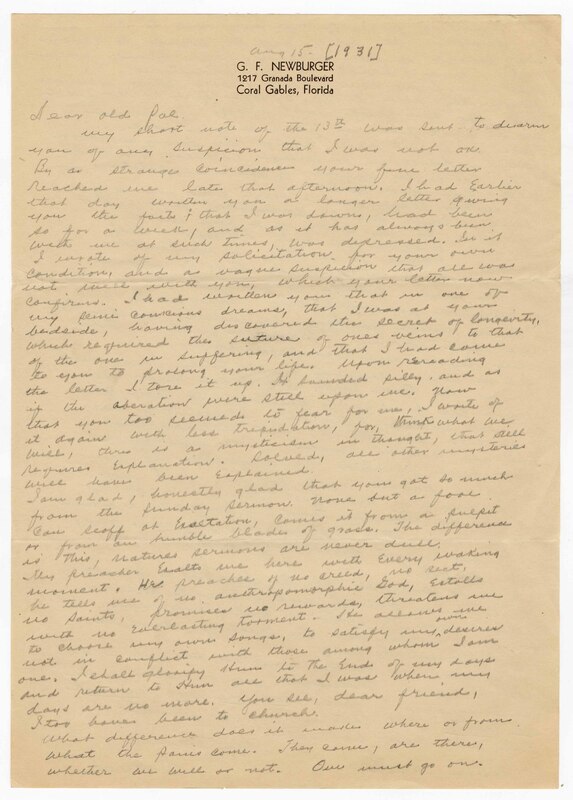 Aug 15- [1931]
G. F. NEWBURGER
1217 Granada Boulevard
Coral Gables, Florida
Dear old Pal
My short note of the 13th was sent to disarm
you of any suspicion that I was not ok.
By a strange coincidence your fine letter
reached me late that afternoon. I had Earlier
that day written you a longer letter giving
you the facts; that I was down, had been
so for a week, and as it has always been
with me at such times, was depressed. In it
I wrote of my solicitation for your own
condition, and a vague suspicion that all was
not well with you, which your letter now
confirms. I had written you that in one of
my semi concious dreams, that I was at your
bedside, having discovered the secret of longevity,
which required the suture of ones veins to that
of the one in suffering, and that I had come
to you to prolong your life. Upon rereading
the letter I tore it up. It sounded silly, and as
if the aberation were still upon me. Now
that you too seemed to fear for me, I write of
it again with less trepidation, for, think what we
will, there is a mysticism in thought, that still
requires Explanation. Solved, all other mysteries
will have been Explained.
I am glad, honestly glad that you got so much
from the Sunday Sermon. None but a fool
can scoff at Exaltation, comes it from a pulpit
or from an humble blade of grass. The difference
is this, natures sermons are never dull.
My preacher Exalts me here with Every waking
moment. He preaches of no creed, no sect,
he tells me of no anthropomorphic God, Extolls
no Saints, promises no rewards, threatens me
with no Everlasting torment. He allows me
to choose my own songs, to satisfy my own desires
not in conflict with those among whom I am
one. I shall glorify Him to the End of my days
and return to Him all that I was when my
days are no more. You see, dear friend,
I too have been to church.
What difference does it make where or from
what the pains come. They come, are there,
whether we will or not. One must go on.